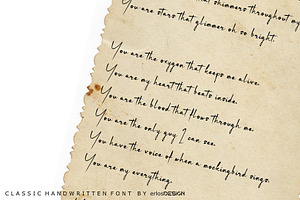 that shimmers throughout my
You are stars that glimmer oh so bright.
You are the oxygen that keeps me alive.
You are my heart that beats inside.
You are the blood that flows through me.
You are the only guy I can see.
You have the voice of when a mockingbird sings.
You are my everything.
CLASSIC HANDWRITTEN FONT BY erlosDESIGN